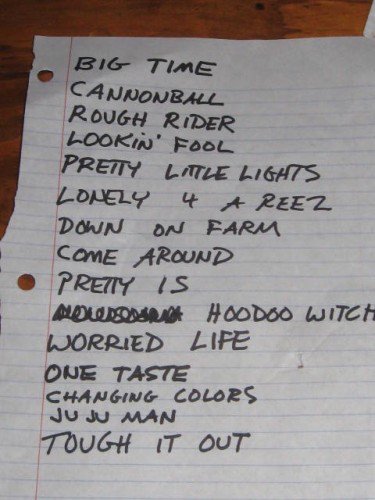 BIG TIME
CANNONBALL
ROUGH RIDER
LOOKIN' FOOL
PRETTY LITTLE LIGHTS
LONELY 4 A REEZ
DOWN ON FARM
COME AROUND
PRETTY IS
HOODOO WITCH
WORRIED LIFE
ONE TASTE
CHANGING COLORS
JUJU MAN
TOUGH IT OUT